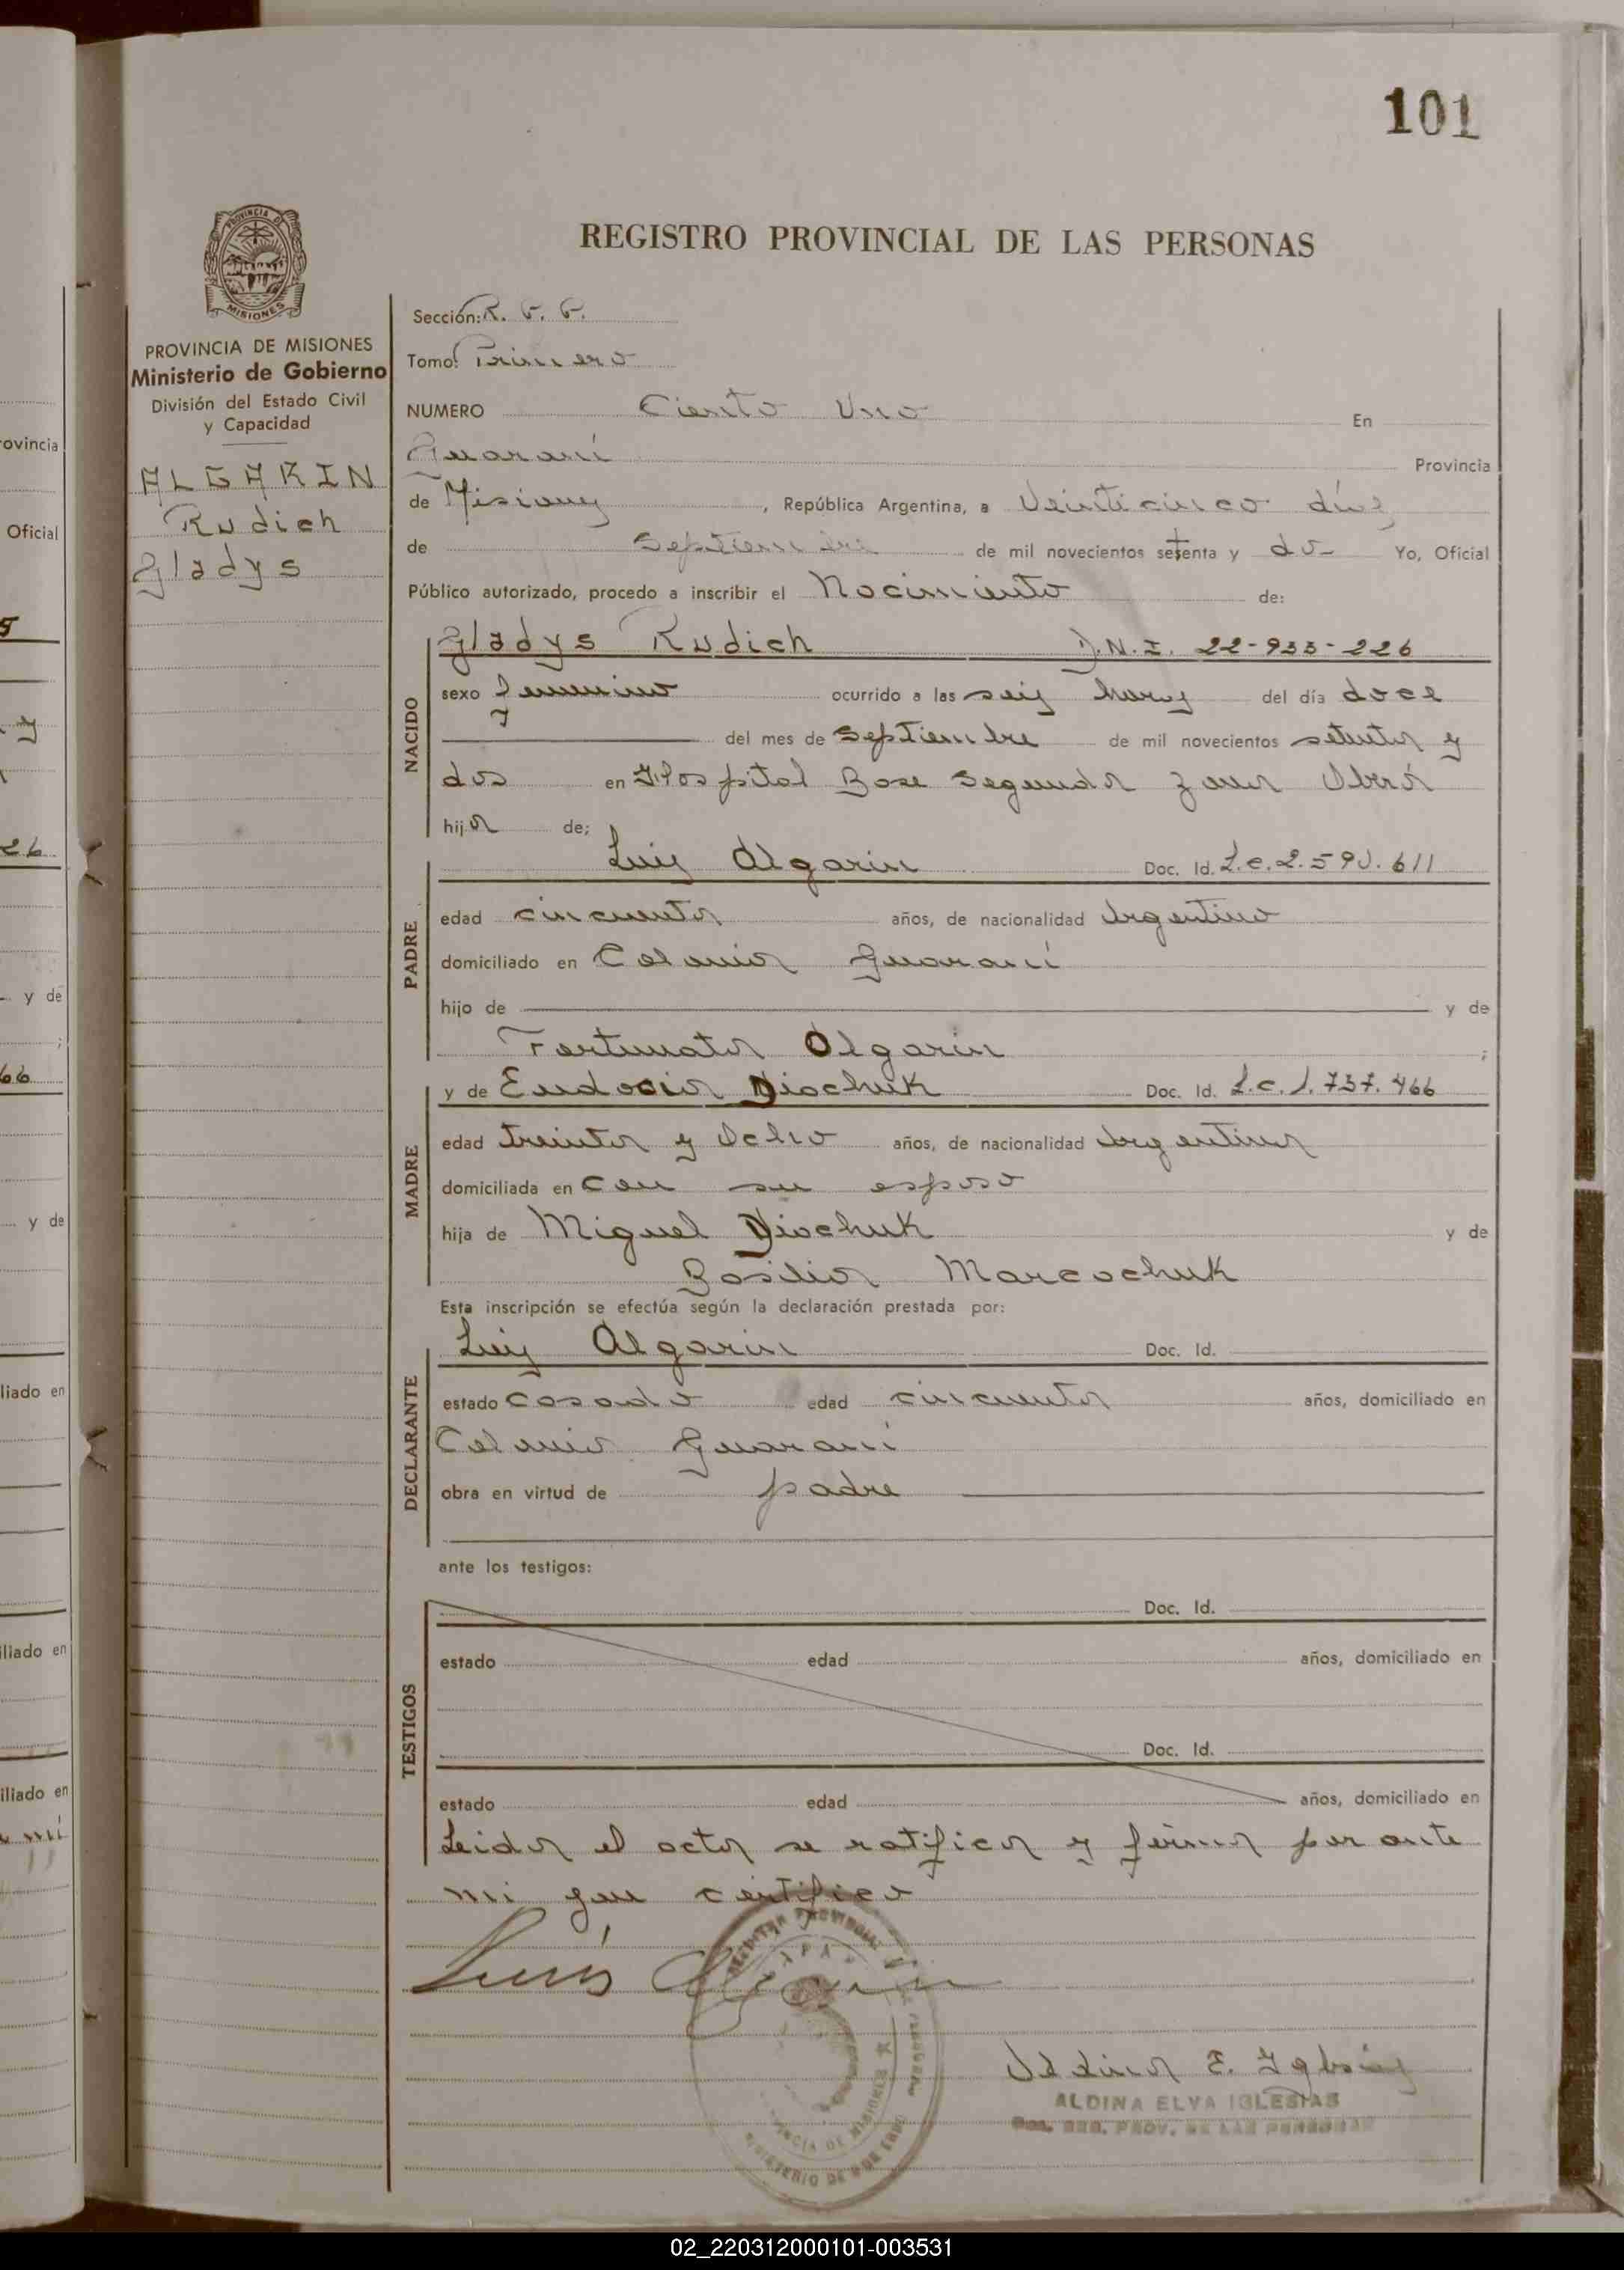 101
REGISTRO PROVINCIAL DE LAS PERSONAS
PROVINCIA DE MISIONES
Ministerio de Gobierno
División del Estado Civil
y Capacidad
ALGARIN
Rudich
Gladys
Sección: R. P. P.
Tomo: Primero
NUMERO Ciento Uno En
Guaraní Provincia
de Misiones, República Argentina, a Veinticinco días
de Septiembre de mil novecientos setenta y dos Yo, Oficial
Público autorizado, procedo a inscribir el Nacimiento de:
NACIDO
Gladys Rudich D.N.I. 22-933-226
sexo femenino ocurrido a las seis horas del día doce
del mes de Septiembre de mil novecientos setenta y
dos en Hospital Base Segunda zona Oberá
hija de;
PADRE
Luis Algarin Doc. Id. L.e. 2.590.611
edad cincuenta años, de nacionalidad Argentino
domiciliado en Colonia Guaraní
hijo de y de
Fortunata Algarin ;
MADRE
y de Eudocia Diachuk Doc. Id. L.c. 1.737.466
edad treinta y Ocho años, de nacionalidad Argentina
domiciliada en con su esposo
hija de Miguel Diachuk y de
Basilia Marcochuk
Esta inscripción se efectúa según la declaración prestada por:
DECLARANTE
Luis Algarin Doc. Id.
estado casado edad cincuenta años, domiciliado en
Colonia Guaraní
obra en virtud de padre
ante los testigos:
TESTIGOS
Doc. Id.
estado edad años, domiciliado en
Doc. Id.
estado edad años, domiciliado en
Leida el acta se ratifica y firma por ante
mi que certifico
Luis Algarin
Aldina E. Iglesias
ALDINA ELVA IGLESIAS
REG. PROV. DE LAS PERSONAS
02_220312000101-003531